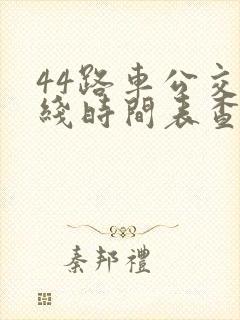 44路車公交
綫時間表查
秦邦禮